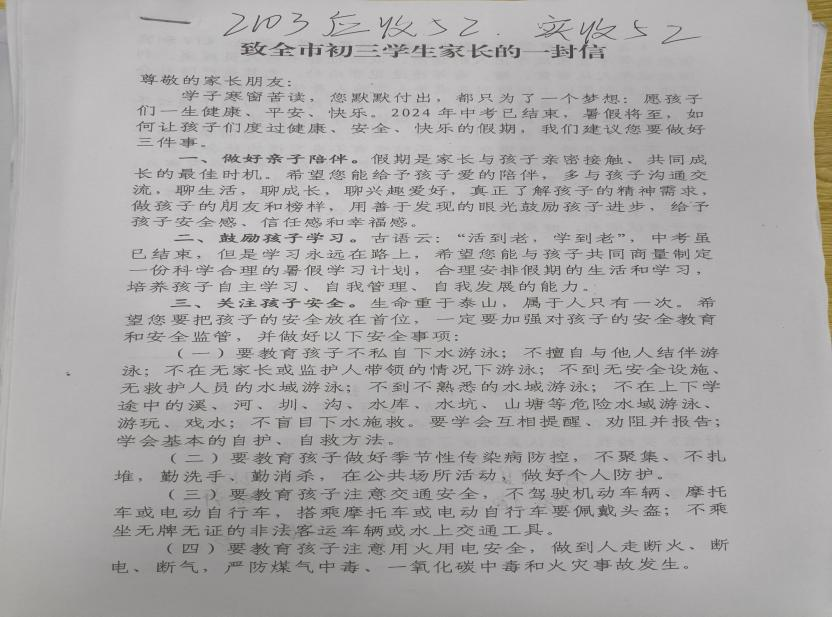 一 2103 应收52. 实收52
致全市初三学生家长的一封信
尊敬的家长朋友：
学子寒窗苦读，您默默付出，都只为了一个梦想：愿孩子
们一生健康、平安、快乐。2024年中考已结束，暑假将至，如
何让孩子们度过健康、安全、快乐的假期，我们建议您要做好
三件事。
一、做好亲子陪伴。假期是家长与孩子亲密接触、共同成
长的最佳时机。希望您能给予孩子爱的陪伴，多与孩子沟通交
流，聊生活，聊成长，聊兴趣爱好，真正了解孩子的精神需求，
做孩子的朋友和榜样，用善于发现的眼光鼓励孩子进步，给予
孩子安全感、信任感和幸福感。
二、鼓励孩子学习。古语云：“活到老，学到老”，中考虽
已结束，但是学习永远在路上，希望您能与孩子共同商量制定
一份科学合理的暑假学习计划，合理安排假期的生活和学习，
培养孩子自主学习、自我管理、自我发展的能力。
三、关注孩子安全。生命重于泰山，属于人只有一次。希
望您要把孩子的安全放在首位，一定要加强对孩子的安全教育
和安全监管，并做好以下安全事项：
（一）要教育孩子不私自下水游泳；不擅自与他人结伴游
泳；不在无家长或监护人带领的情况下游泳；不到无安全设施、
无救护人员的水域游泳；不到不熟悉的水域游泳；不在上下学
途中的溪、河、圳、沟、水库、水坑、山塘等危险水域游泳、
游玩、戏水；不盲目下水施救。要学会互相提醒、劝阻并报告；
学会基本的自护、自救方法。
（二）要教育孩子做好季节性传染病防控，不聚集、不扎
堆，勤洗手、勤消杀，在公共场所活动，做好个人防护。
（三）要教育孩子注意交通安全，不驾驶机动车辆、摩托
车或电动自行车，搭乘摩托车或电动自行车要佩戴头盔；不乘
坐无牌无证的非法客运车辆或水上交通工具。
（四）要教育孩子注意用火用电安全，做到人走断火、断
电、断气，严防煤气中毒、一氧化碳中毒和火灾事故发生。